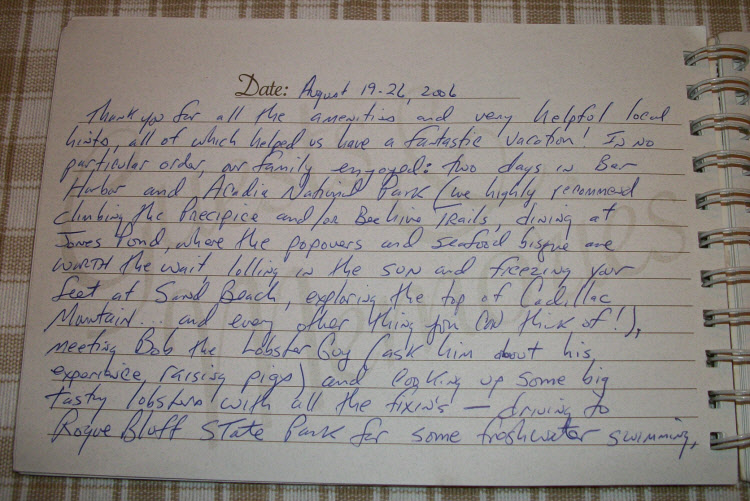 Date: August 19-26, 2006
Thank you for all the amenities and very helpful local
hints, all of which helped us have a fantastic vacation! In no
particular order, our family enjoyed: two days in Bar
Harbor and Acadia National Park (we highly recommend
climbing the Precipice and/or Beehive Trails, dining at
Jones Pond, where the popovers and seafood bisque are
WORTH the wait lolling in the sun and freezing your
feet at Sand Beach, exploring the top of Cadillac
Mountain... and every other thing you can think of!),
meeting Bob the Lobster Guy (ask him about his
experience raising pigs) and cooking up some big
tasty lobsters with all the fixin's — driving to
Roque Bluff State Park for some freshwater swimming,